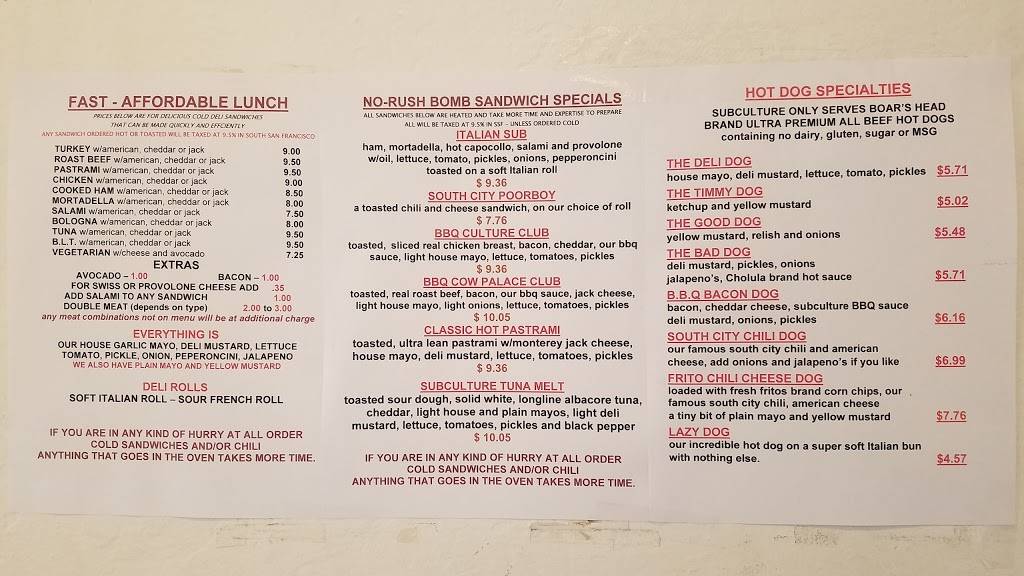 FAST - AFFORDABLE LUNCH
PRICES BELOW ARE FOR DELICIOUS COLD DELI SANDWICHES
THAT CAN BE MADE QUICKLY AND EFFCIENTLY
ANY SANDWICH ORDERED HOT OR TOASTED WILL BE TAXED AT 9.5% IN SOUTH SAN FRANCISCO
TURKEY w/american, cheddar or jack 9.00
ROAST BEEF w/american, cheddar or jack 9.50
PASTRAMI w/american, cheddar or jack 9.50
CHICKEN w/american, cheddar or jack 9.00
COOKED HAM w/american, cheddar or jack 8.50
MORTADELLA w/american, cheddar or jack 8.00
SALAMI w/american, cheddar or jack 7.50
BOLOGNA w/american, cheddar or jack 8.00
TUNA w/american, cheddar or jack 9.50
B.L.T. w/american, cheddar or jack 9.50
VEGETARIAN w/cheese and avocado 7.25
EXTRAS
AVOCADO – 1.00 BACON – 1.00
FOR SWISS OR PROVOLONE CHEESE ADD .35
ADD SALAMI TO ANY SANDWICH 1.00
DOUBLE MEAT (depends on type) 2.00 to 3.00
any meat combinations not on menu will be at additional charge
EVERYTHING IS
OUR HOUSE GARLIC MAYO, DELI MUSTARD, LETTUCE
TOMATO, PICKLE, ONION, PEPERONCINI, JALAPENO
WE ALSO HAVE PLAIN MAYO AND YELLOW MUSTARD
DELI ROLLS
SOFT ITALIAN ROLL – SOUR FRENCH ROLL
IF YOU ARE IN ANY KIND OF HURRY AT ALL ORDER
COLD SANDWICHES AND/OR CHILI
ANYTHING THAT GOES IN THE OVEN TAKES MORE TIME.
NO-RUSH BOMB SANDWICH SPECIALS
ALL SANDWICHES BELOW ARE HEATED AND TAKE MORE TIME AND EXPERTISE TO PREPARE
ALL WILL BE TAXED AT 9.5% IN SSF - UNLESS ORDERED COLD
ITALIAN SUB
ham, mortadella, hot capocollo, salami and provolone
w/oil, lettuce, tomato, pickles, onions, pepperoncini
toasted on a soft Italian roll
$ 9.36
SOUTH CITY POORBOY
a toasted chili and cheese sandwich, on our choice of roll
$ 7.76
BBQ CULTURE CLUB
toasted, sliced real chicken breast, bacon, cheddar, our bbq
sauce, light house mayo, lettuce, tomatoes, pickles
$ 9.36
BBQ COW PALACE CLUB
toasted, real roast beef, bacon, our bbq sauce, jack cheese,
light house mayo, light onions, lettuce, tomatoes, pickles
$ 10.05
CLASSIC HOT PASTRAMI
toasted, ultra lean pastrami w/monterey jack cheese,
house mayo, deli mustard, lettuce, tomatoes, pickles
$ 9.36
SUBCULTURE TUNA MELT
toasted sour dough, solid white, longline albacore tuna,
cheddar, light house and plain mayos, light deli
mustard, lettuce, tomatoes, pickles and black pepper
$ 10.05
IF YOU ARE IN ANY KIND OF HURRY AT ALL ORDER
COLD SANDWICHES AND/OR CHILI
ANYTHING THAT GOES IN THE OVEN TAKES MORE TIME.
HOT DOG SPECIALTIES
SUBCULTURE ONLY SERVES BOAR'S HEAD
BRAND ULTRA PREMIUM ALL BEEF HOT DOGS
containing no dairy, gluten, sugar or MSG
THE DELI DOG
house mayo, deli mustard, lettuce, tomato, pickles $5.71
THE TIMMY DOG
ketchup and yellow mustard $5.02
THE GOOD DOG
yellow mustard, relish and onions $5.48
THE BAD DOG
deli mustard, pickles, onions
jalapeño's, Cholula brand hot sauce $5.71
B.B.Q BACON DOG
bacon, cheddar cheese, subculture BBQ sauce
deli mustard, onions, pickles $6.16
SOUTH CITY CHILI DOG
our famous south city chili and american
cheese, add onions and jalapeño's if you like $6.99
FRITO CHILI CHEESE DOG
loaded with fresh fritos brand corn chips, our
famous south city chili, american cheese
a tiny bit of plain mayo and yellow mustard $7.76
LAZY DOG
our incredible hot dog on a super soft Italian bun
with nothing else. $4.57